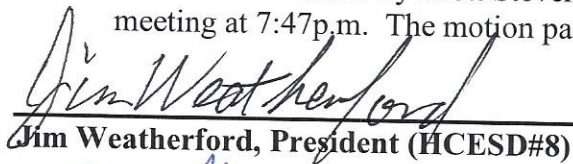 meeting at 7:47p.m. The motion pa
Jim Weatherford
Jim Weatherford, President (HCESD#8)